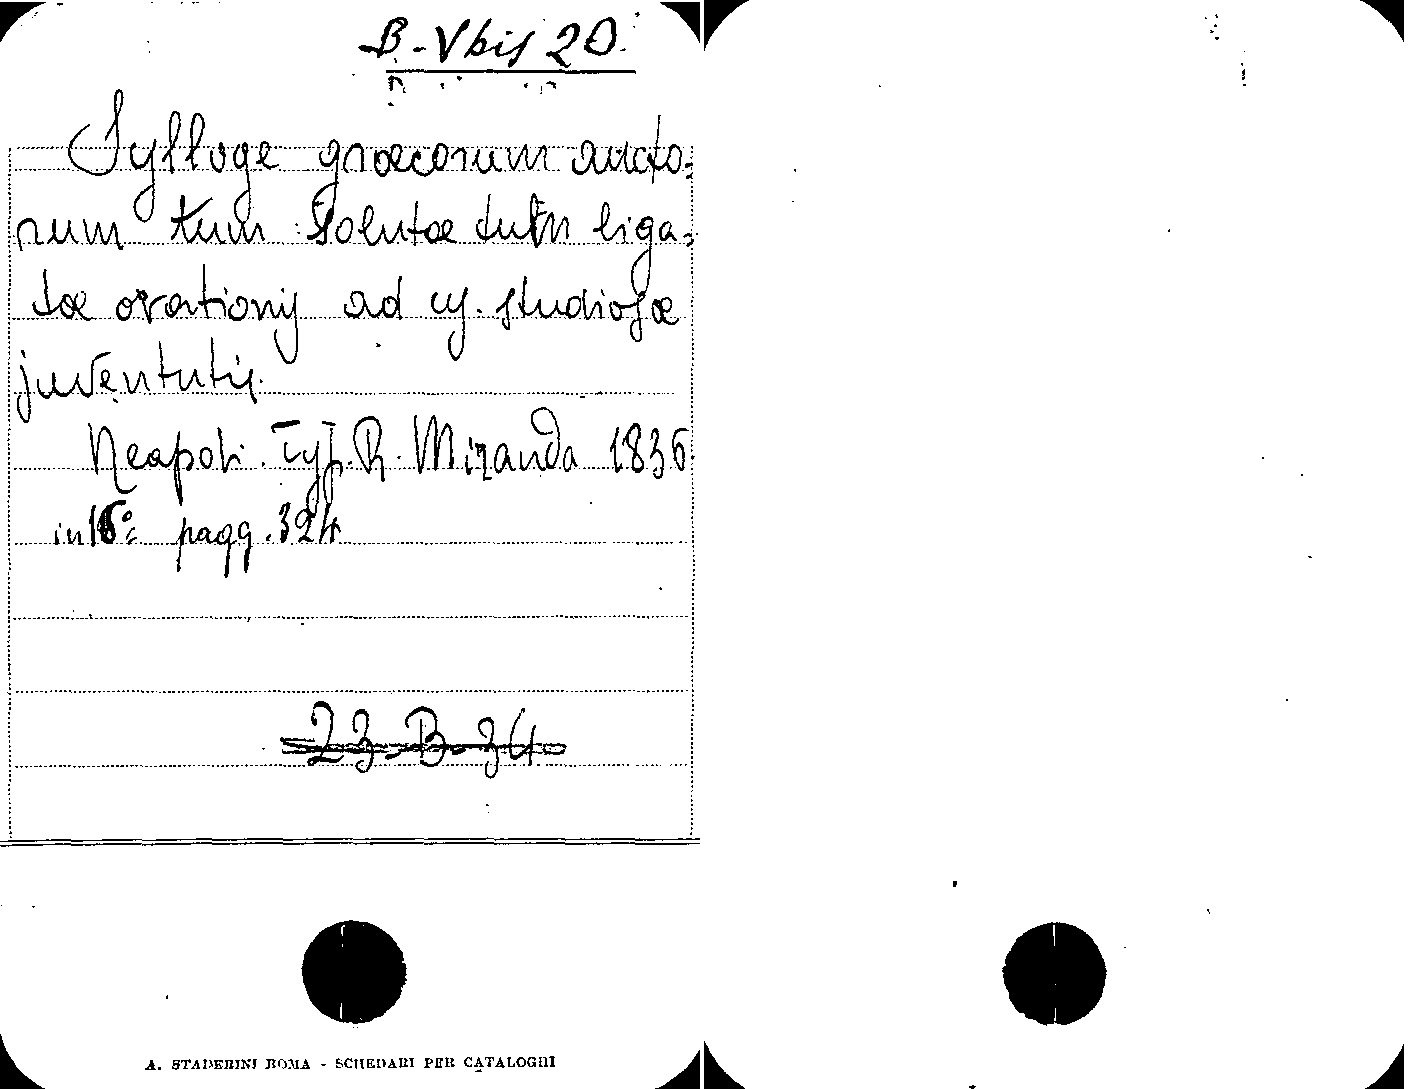 B-Vbis 20
Sylloge græcorum aucto-
rum tum solutæ tum liga-
tæ orationis ad us. studiosæ
juventutis.
Neapoli. Typ. R. Miranda 1836
in 16° pagg. 324
23-B-34
A. STADERINI ROMA - SCHEDARI PER CATALOGHI